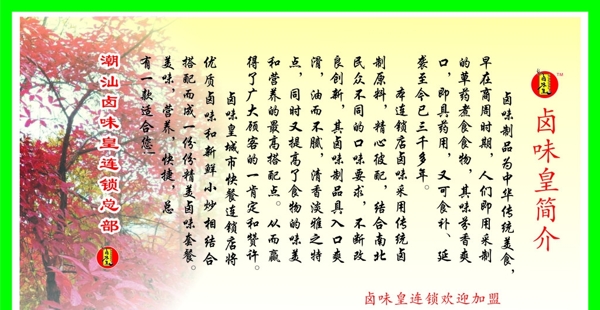 卤味皇简介
TM
卤味制品为中华传统美食，
早在商周时期，人们即用采制
的草药煮食食物，其味芬香爽
口，即具药用，又可食补、延
袭至今已三千多年。
本连锁店卤味采用传统卤
制原料，精心彼配，结合南北
民众不同的口味要求，不断改
良创新，其卤味制品具入口爽
滑，油而不腻，清香淡雅之特
点，同时又提高了食物的味美
和营养的最高搭配点。从而赢
得了广大顾客的一肯定和赞许。
卤味皇城市快餐连锁店将
优质卤味和新鲜小炒相结合
搭配而成一份份精美卤味套餐。
美味，营养，快捷，总
有一款适合您！
潮汕卤味皇连锁总部
卤味皇连锁欢迎加盟